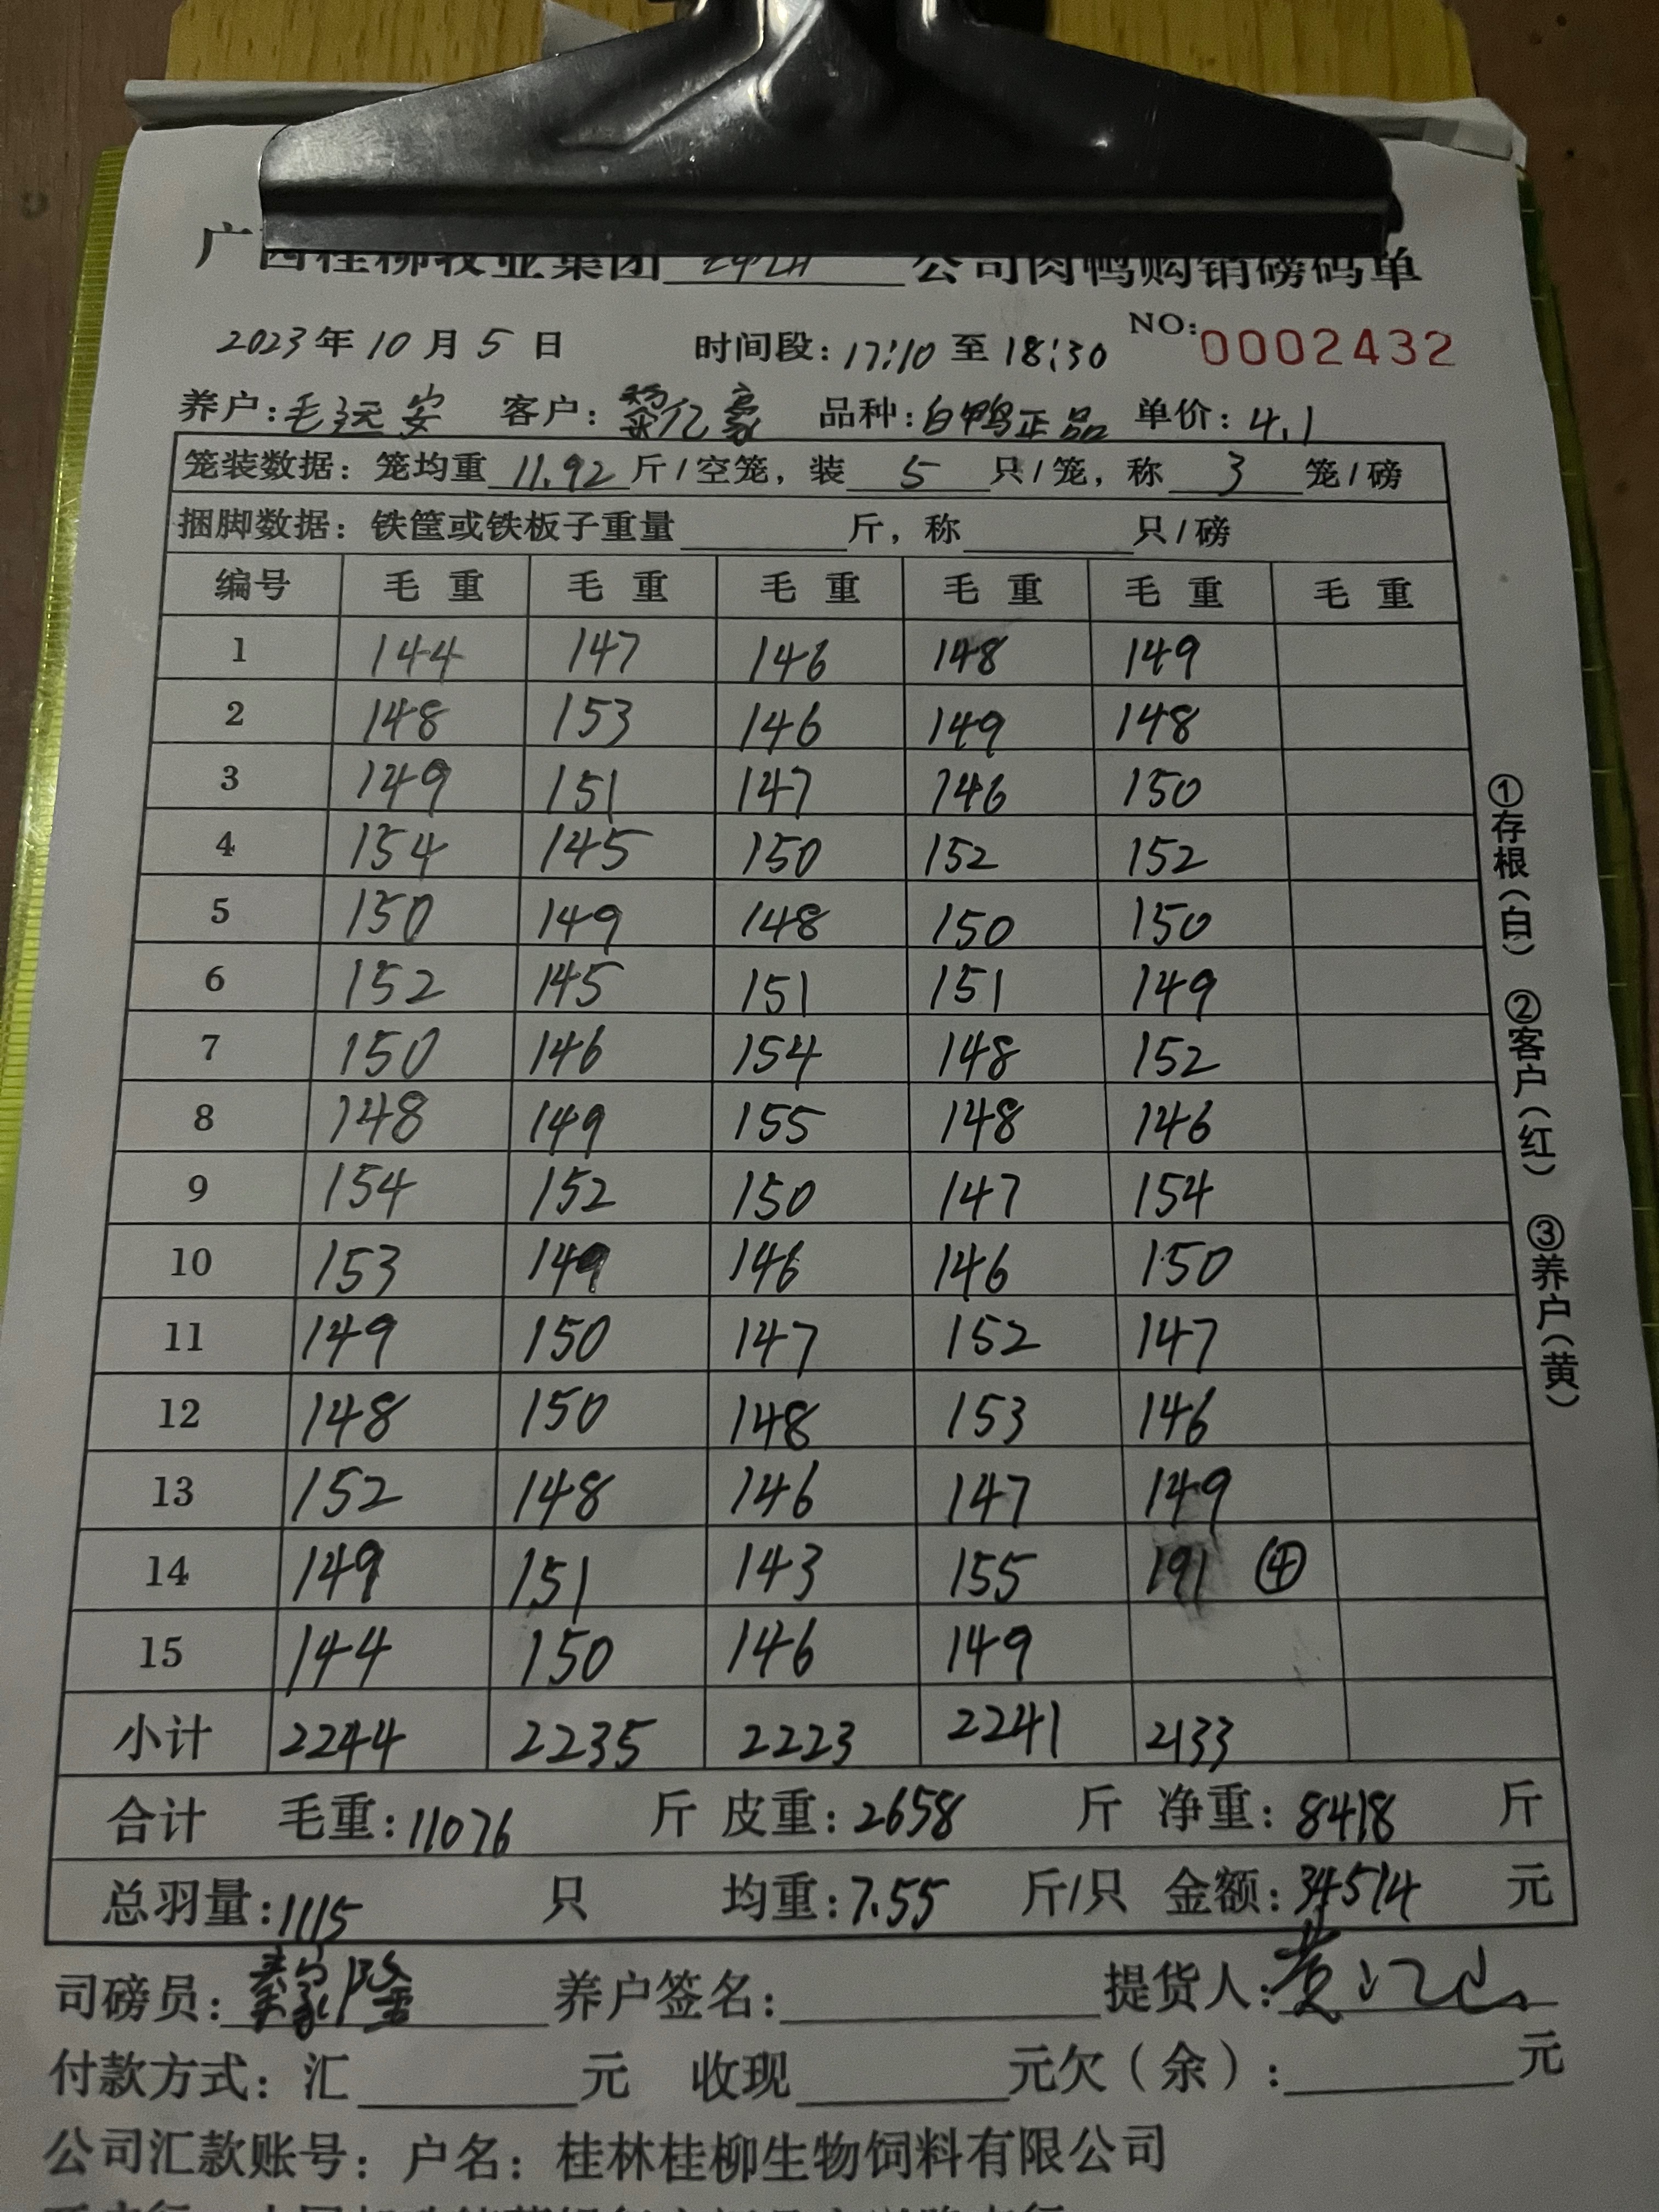 广西桂柳牧业集团 公司肉鸭购销磅码单
2023年10月5日 时间段:17:10至18:30 NO:0002432
养户:毛远安 客户:黎亿豪 品种:白鸭正品 单价:4.1
笼装数据:笼均重11.92斤/空笼,装5只/笼,称3笼/磅
捆脚数据:铁筐或铁板子重量 斤,称 只/磅
编号 毛重 毛重 毛重 毛重 毛重 毛重
1 144 147 146 148 149
2 148 153 146 149 148
3 149 151 147 146 150
4 154 145 150 152 152
5 150 149 148 150 150
6 152 145 151 151 149
7 150 146 154 148 152
8 148 149 155 148 146
9 154 152 150 147 154
10 153 149 146 146 150
11 149 150 147 152 147
12 148 150 148 153 146
13 152 148 146 147 149
14 149 151 143 155 191 ④
15 144 150 146 149
小计 2244 2235 2223 2241 2133
合计 毛重:11076 斤 皮重:2658 斤 净重:8418 斤
总羽量:1115 只 均重:7.55 斤/只 金额:34514 元
司磅员: 养户签名: 提货人:
付款方式:汇 元 收现 元欠(余): 元
公司汇款账号:户名:桂林桂柳生物饲料有限公司
①存根(白) ②客户(红) ③养户(黄)